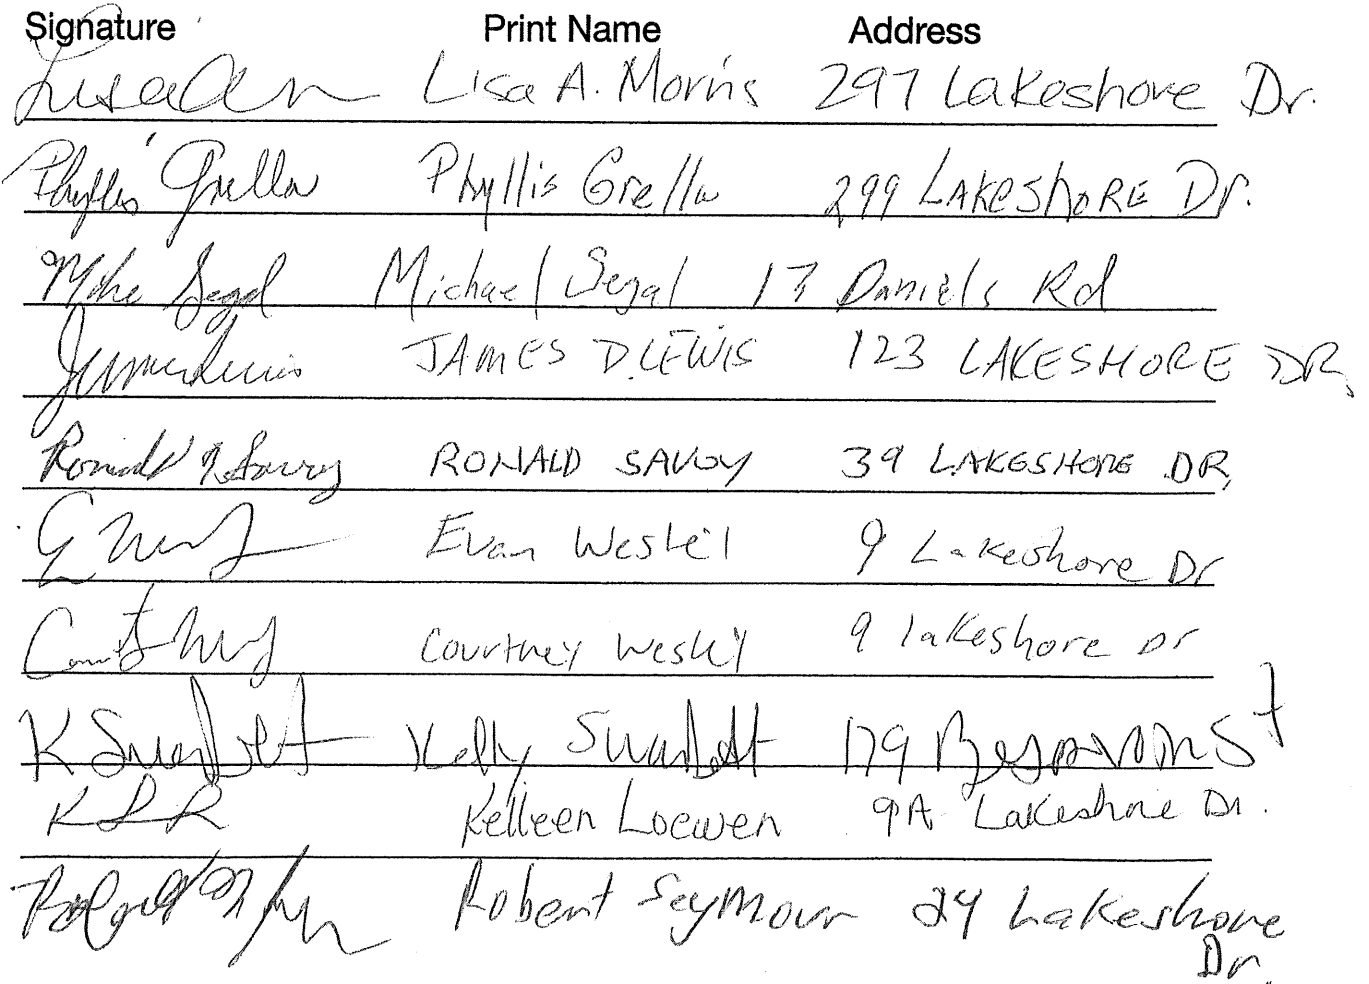 Signature Print Name Address
Lisa A. Morris 297 Lakeshore Dr.
Phyllis Grella Phyllis Grella 299 LAKESHORE Dr.
Mike Segal Michael Segal 17 Daniels Rd
James Lewis JAMES D. LEWIS 123 LAKESHORE DR.
Ronald Savoy RONALD SAVOY 39 LAKESHORE DR.
Evan Weslel 9 Lakeshore Dr
Courtney Wesley 9 lakeshore Dr
K Swartlett Kelly Swartlett 179 St
KLR Kelleen Loewen 9A Lakeshore Dr.
Robert Seymour 24 Lakeshore
Dr.